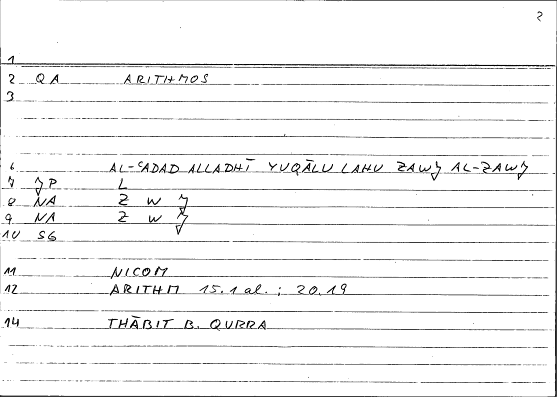 2
1
2 QA ARITHMOS
3
6 AL-ʿADAD ALLADHĪ YUQĀLU LAHU ZAWJ AL-ZAWJ
7 JP L
8 NA Z W J
9 NA Z W J
10 SG
11 NICOM
12 ARITHM 15.1 al.; 20.19
14 THĀBIT B. QURRA